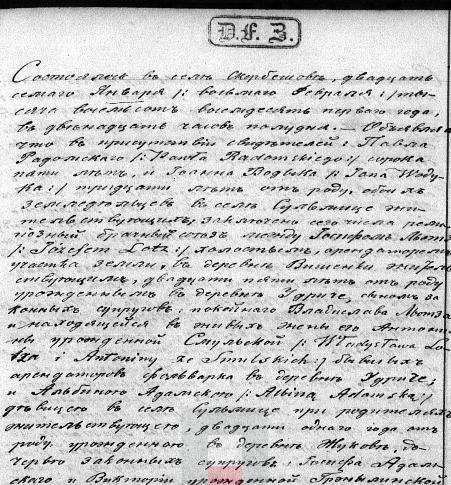 D. F. Z.
Состоялось въ селѣ Скербешовѣ, двадцать
седмаго Января /: восьмаго Февраля :/ ты-
сяча восемьсотъ восемдесятъ перваго года,
въ двѣнадцать часовъ полудня. — Объявля
что въ присутствіи свидѣтелей: Павла
Радомскаго /: Pawła Radomskiego :/ сорока
пяти лѣтъ, и Іоанна Водыка /: Jana Wody-
ka :/ тридцати лѣтъ отъ роду, обоихъ
земледѣльцевъ въ селѣ Сульмице жи-
тельствующихъ; заключенъ сего числа рели-
гіозный брачный союзъ между Іосифомъ Лотз
/: Józefem Lotz :/ холостымъ, арендаторомъ
участка земли, въ деревнѣ Вишенки житель
ствующимъ, двадцати пяти лѣтъ отъ роду
урожденнымъ въ деревнѣ Удриче, сыномъ за
конныхъ супруговъ, покойнаго Владислава Лотза
и находящейся въ живыхъ жены его Антони-
ны урожденной Смульской /: Władysława Lo-
tza i Antoniny ze Smulskich :/ бывшихъ
арендаторовъ фольварка въ деревнѣ Удриче;
и Альбиною Адамскою /: Albina Adamska :/
дѣвицею въ селѣ Сульмице при родителяхъ
жительствующею, двадцати одного года отъ
роду, урожденною въ деревнѣ Жуковѣ, до-
черью законныхъ супруговъ, Іосифа Адам-
скаго и Викторіи урожденной